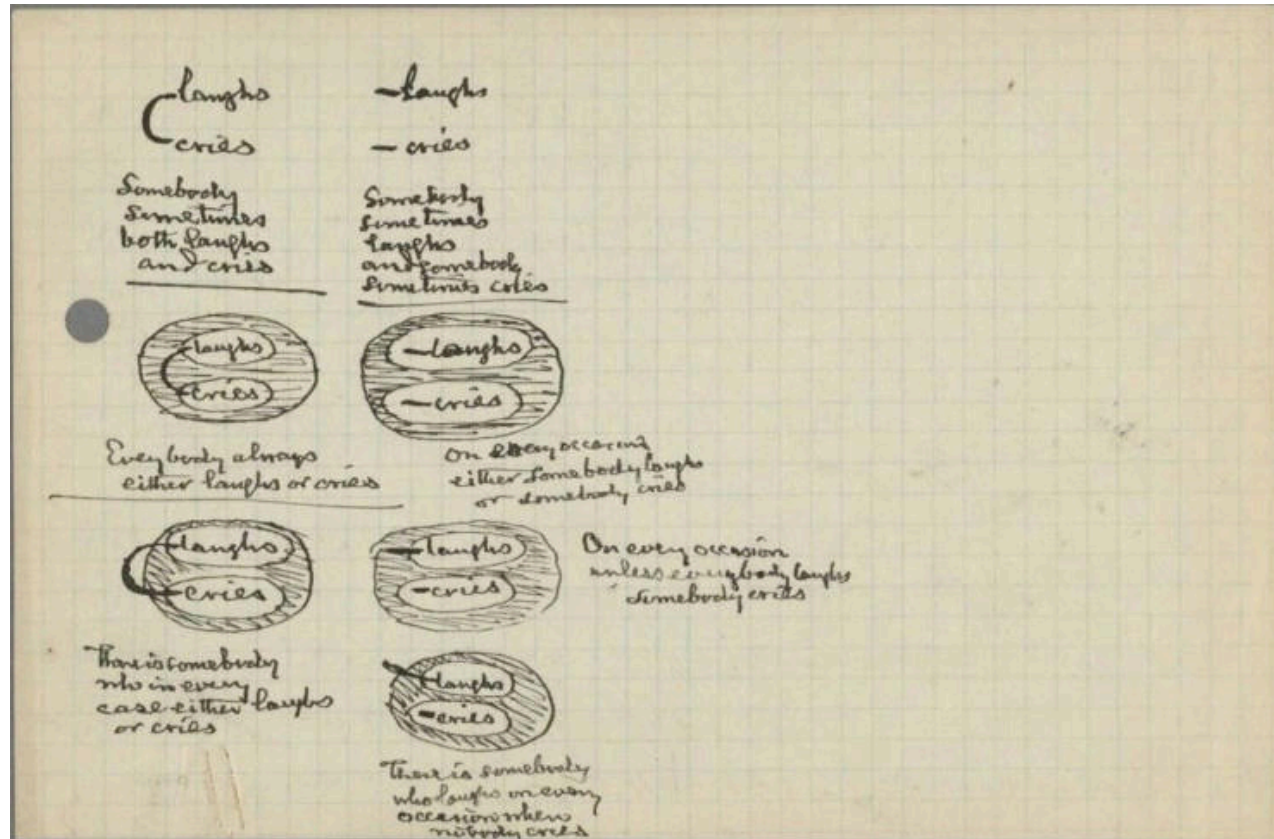 laughs
cries
Somebody
sometimes
both laughs
and cries
laughs
cries
Somebody
sometimes
laughs
and somebody
sometimes cries
laughs
cries
Everybody always
either laughs or cries
laughs
cries
on every occasion
either somebody laughs
or somebody cries
laughs
cries
There is somebody
who in every
case either laughs
or cries
laughs
cries
On every occasion
unless everybody laughs
somebody cries
laughs
cries
There is somebody
who laughs on every
occasion when
nobody cries